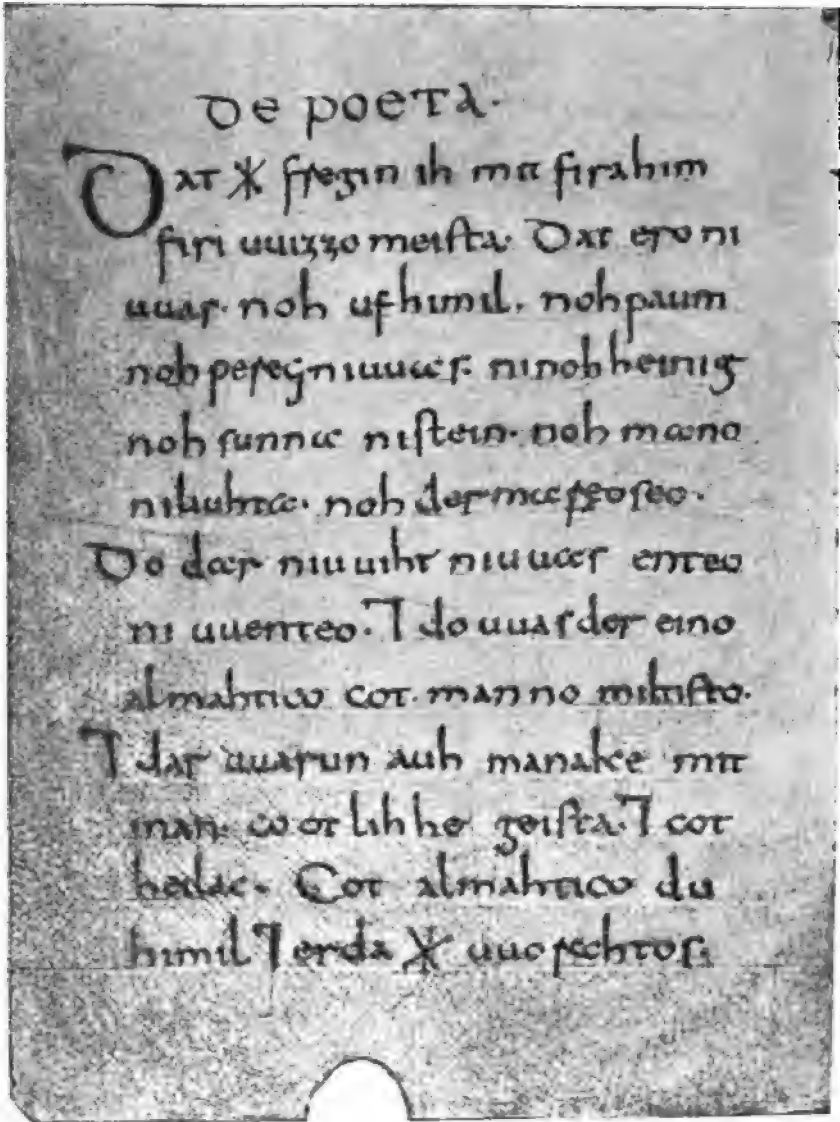 De poeta.
Dat ᚼ fregin ih mit firahim
firi uuizzo meista. Dat ero ni
uuas. noh ufhimil. noh paum
noh pereg ni uuas. ni nohheinig
noh sunna ni stein. noh mano
ni liuhta. noh der mareo seo.
Do dar niuuiht ni uuas enteo
ni uuenteo. ⁊ do uuas der eino
almahtico cot. manno miltisto.
⁊ dar uuarun auh manake mit
inan. cootlihhe geista. ⁊ cot
heilac. Cot almahtico du
himil ⁊ erda ᚼ uuorahtos;